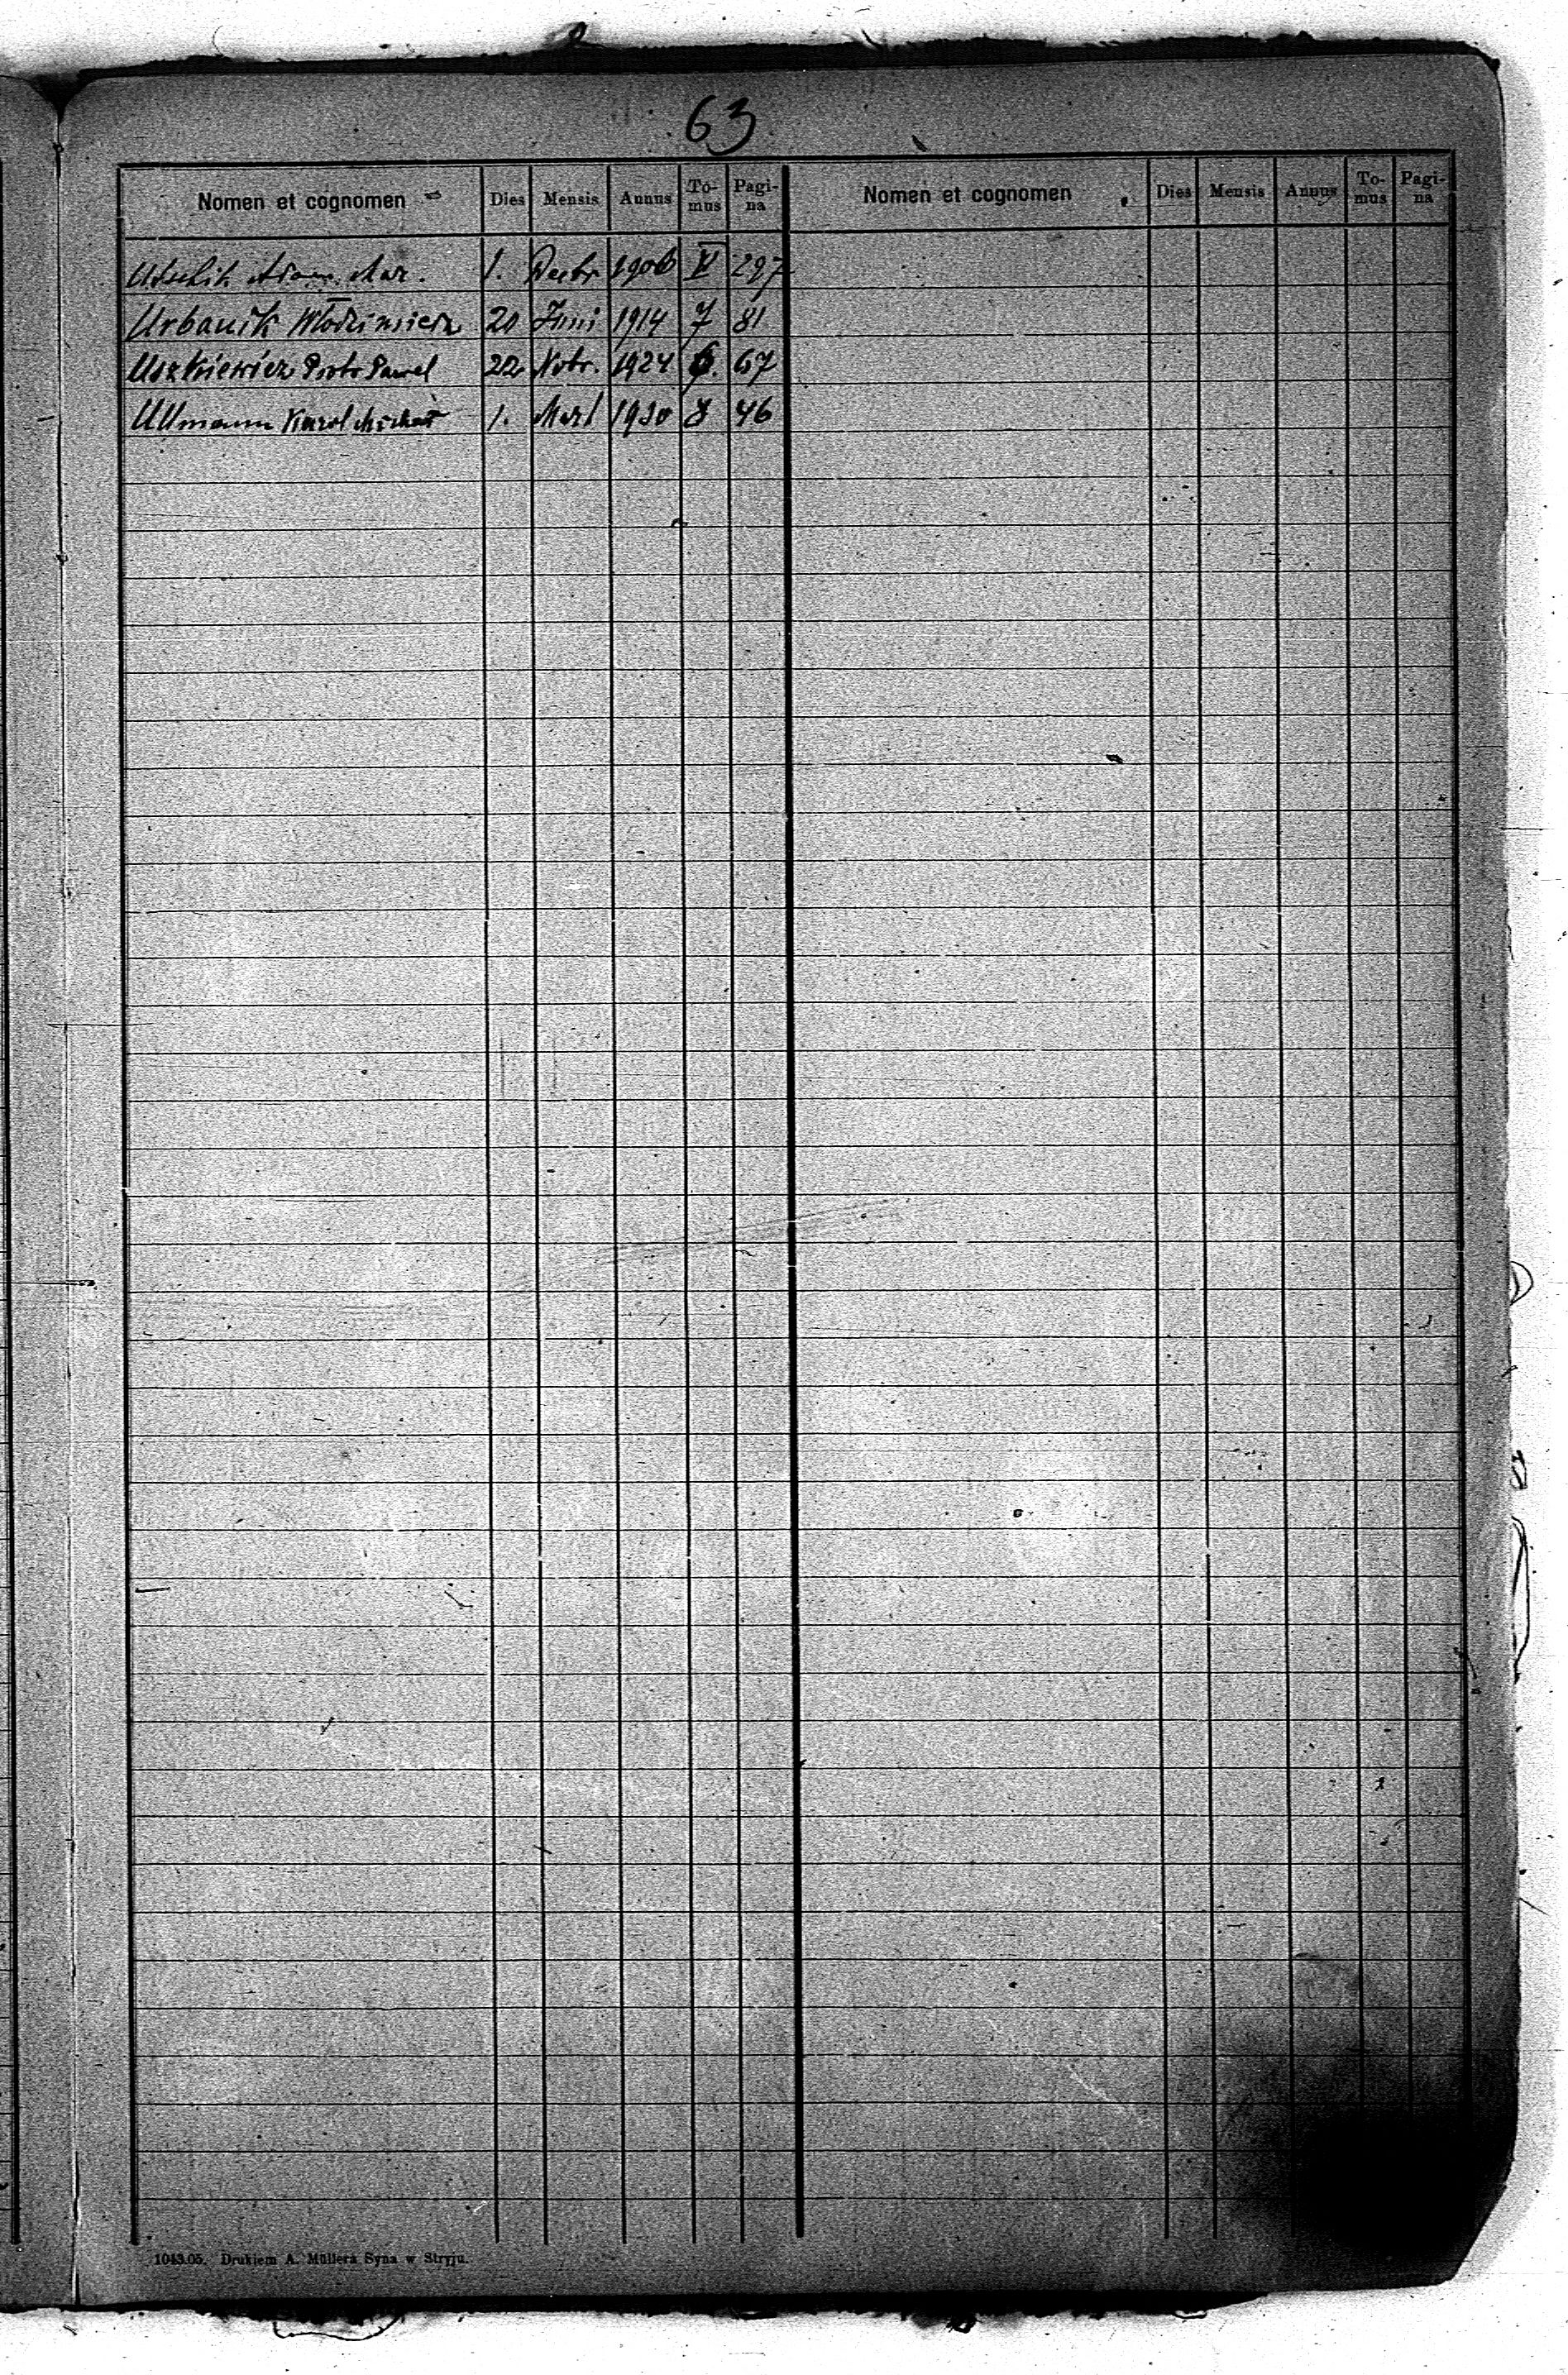 63
Nomen et cognomen Dies Mensis Annus To-mus Pagi-na Nomen et cognomen Dies Mensis Annus To-mus Pagi-na
Adam Mar. 1. Decbr 1906 V 297
Urbanik Włodzimierz 20 Juni 1914 7 81
Uszkiewicz Piotr Paweł 22 Nobr. 1924 6. 67
Ullmann Karol Michał 1. Mart 1930 8 46
1043.05. Drukiem A. Müllera Syna w Stryju.